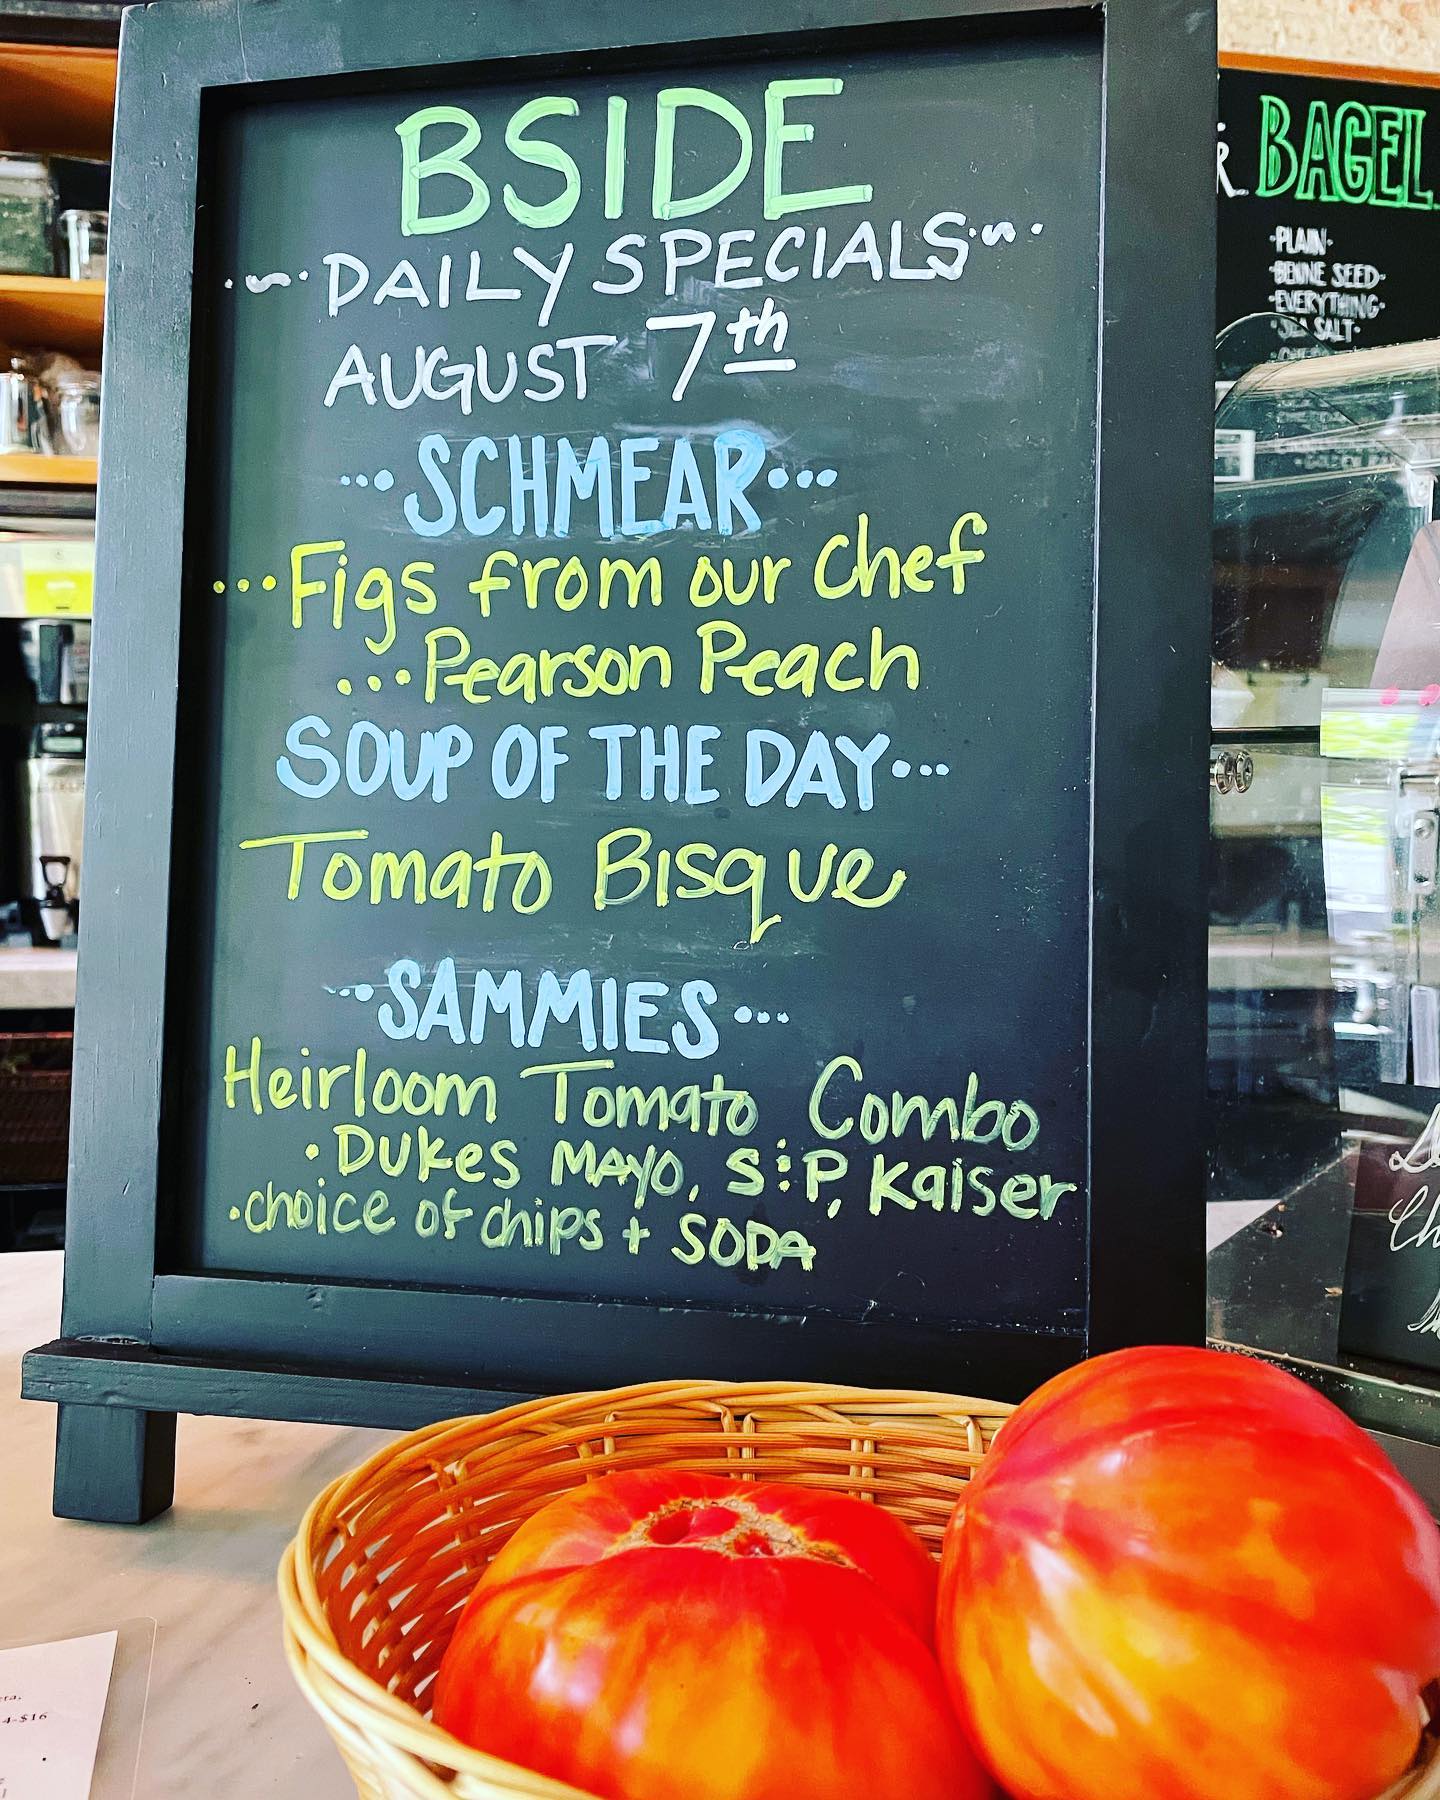 BSIDE
DAILY SPECIALS
AUGUST 7th
...SCHMEAR...
...Figs from our Chef
...Pearson Peach
SOUP OF THE DAY...
Tomato Bisque
...SAMMIES...
Heirloom Tomato Combo
•Dukes MAYO, S:P, Kaiser
•choice of chips + SODA
BAGEL
•PLAIN•
•BENNE SEED•
•EVERYTHING•
•SEA SALT•
4-$16